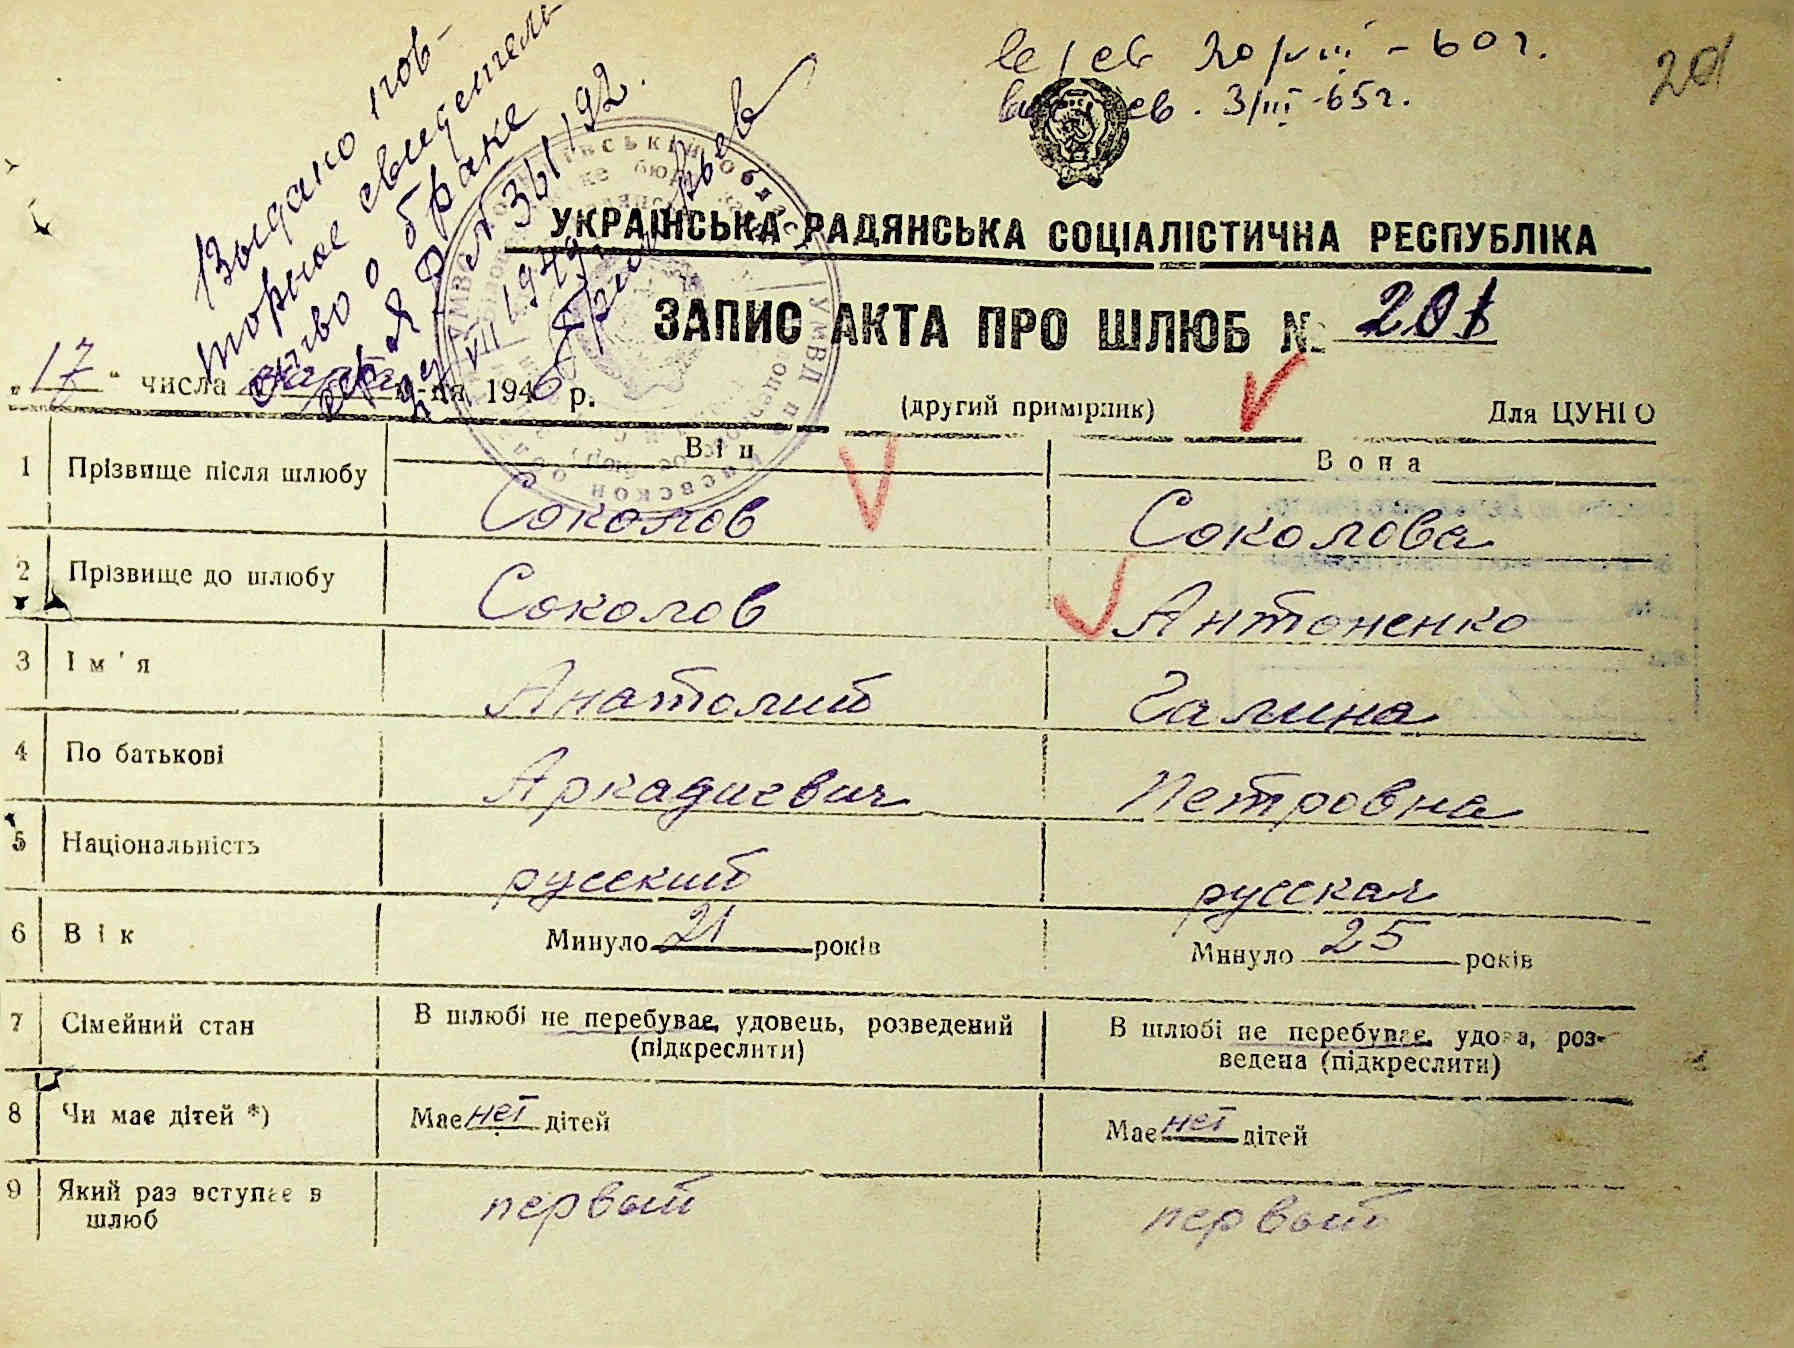 Выдано пов-
торное свидетель-
ство о браке
№ 361192
VII 1949
20/VIII - 60 г.
3/III - 65 г.
201
УКРАЇНСЬКА РАДЯНСЬКА СОЦІАЛІСТИЧНА РЕСПУБЛІКА
ЗАПИС АКТА ПРО ШЛЮБ № 201
„17“ числа м-ця 1946 р.
(другий примірник) Для ЦУНГО
Він Вона
1 Прізвище після шлюбу Соколов Соколова
2 Прізвище до шлюбу Соколов Антоненко
3 Ім'я Анатолий Галина
4 По батькові Аркадиевич Петровна
5 Національність русский русская
6 Вік Минуло 21 років Минуло 25 років
7 Сімейний стан В шлюбі не перебуває, удовець, розведений (підкреслити) В шлюбі не перебуває, удова, роз-
ведена (підкреслити)
8 Чи має дітей *) Має нет дітей Має нет дітей
9 Який раз вступає в шлюб первый первый